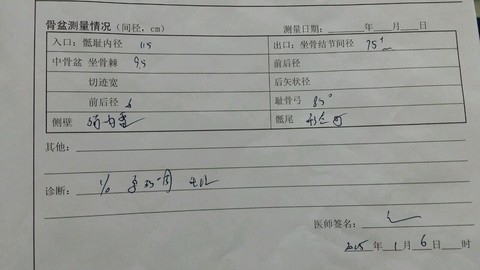 骨盆测量情况（间径，cm） 测量日期： 年 月 日
入口：骶耻内径 11.5 出口：坐骨结节间径 7.5⁺
中骨盆 坐骨棘 9.5 前后径
切迹宽 后矢状径
前后径 耻骨弓 85°
侧壁 骶尾
其他：
诊断：
医师签名：
2015年1月6日 时